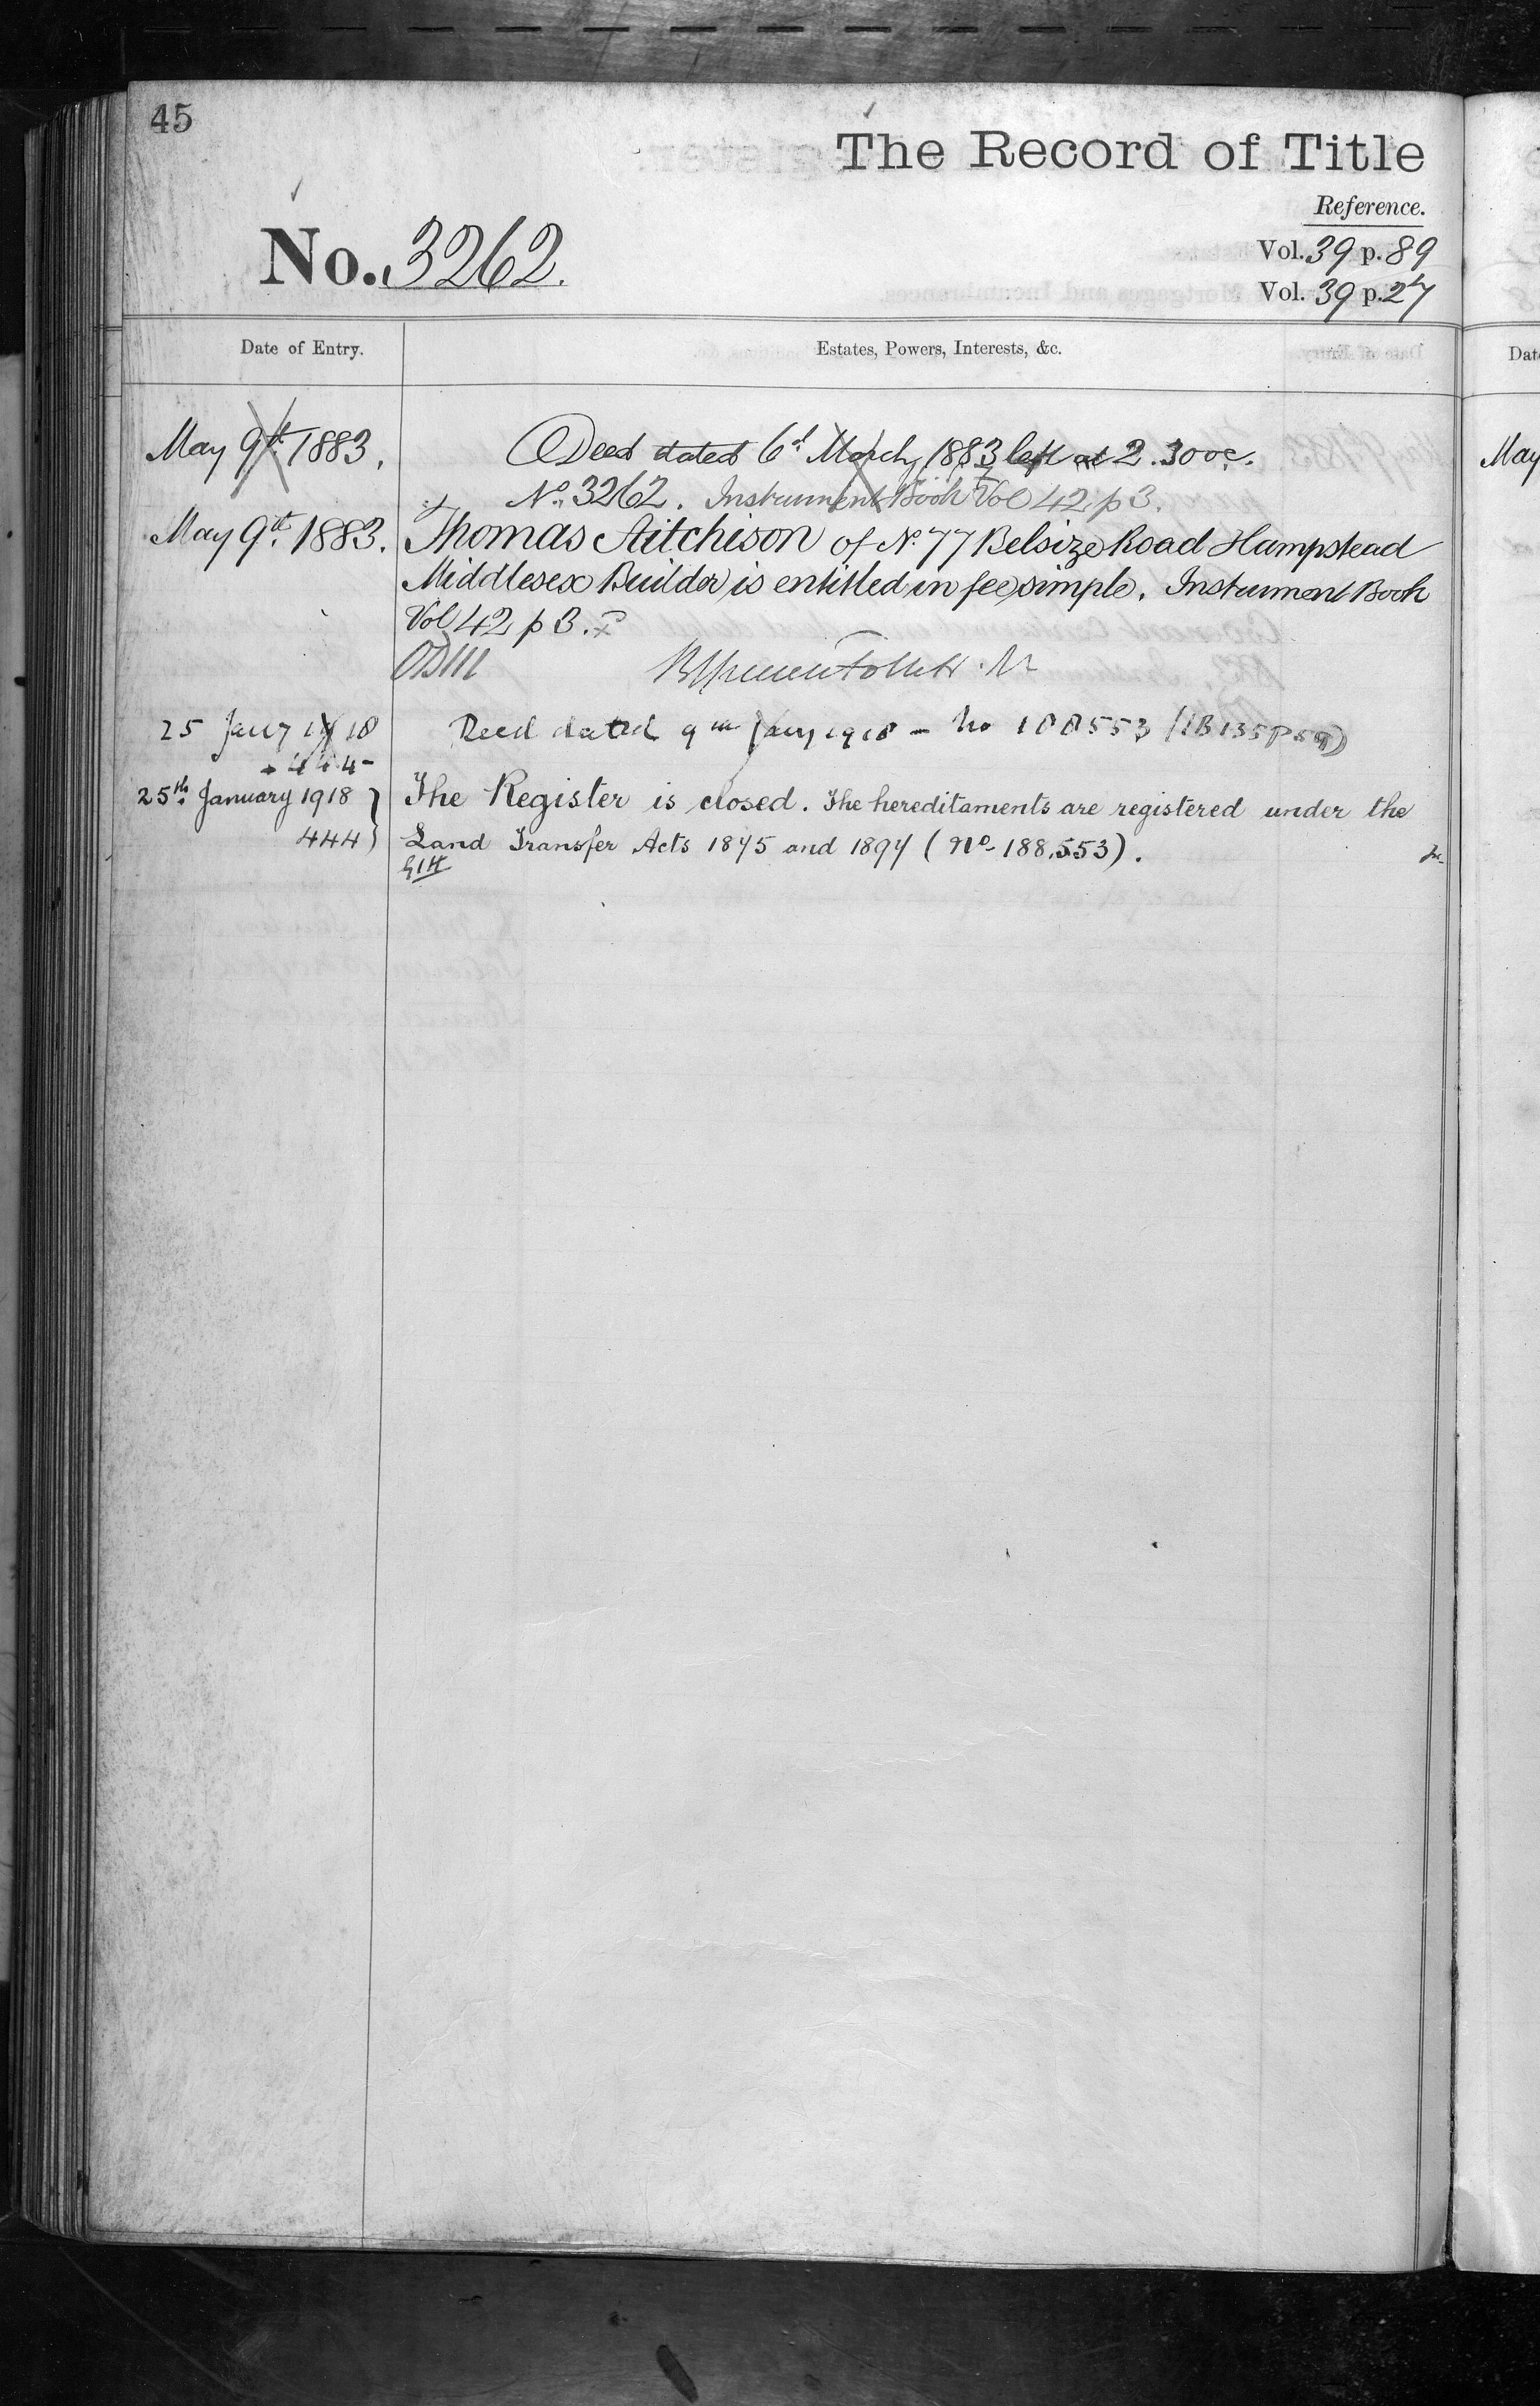 45
The Record of Title
Reference.
No. 3262.
Vol. 39 p. 89
Vol. 39 p. 27
Date of Entry.
Estates, Powers, Interests, &c.
May 9th 1883.
Deed dated 6th March 1883 left at 2.30 oc.
No. 3262. Instrument Book Vol 42 p 3.
May 9th 1883.
Thomas Aitchison of No. 77 Belsize Road Hampstead
Middlesex Builder is entitled in fee simple. Instrument Book
Vol 42 p 3.
25 Jany 1918
Deed dated 9th Jany 1918 - No 188553 (IB 135 P 59)
444
25th January 1918
The Register is closed. The hereditaments are registered under the
444
Land Transfer Acts 1875 and 1897 (No. 188,553).
Dat
May